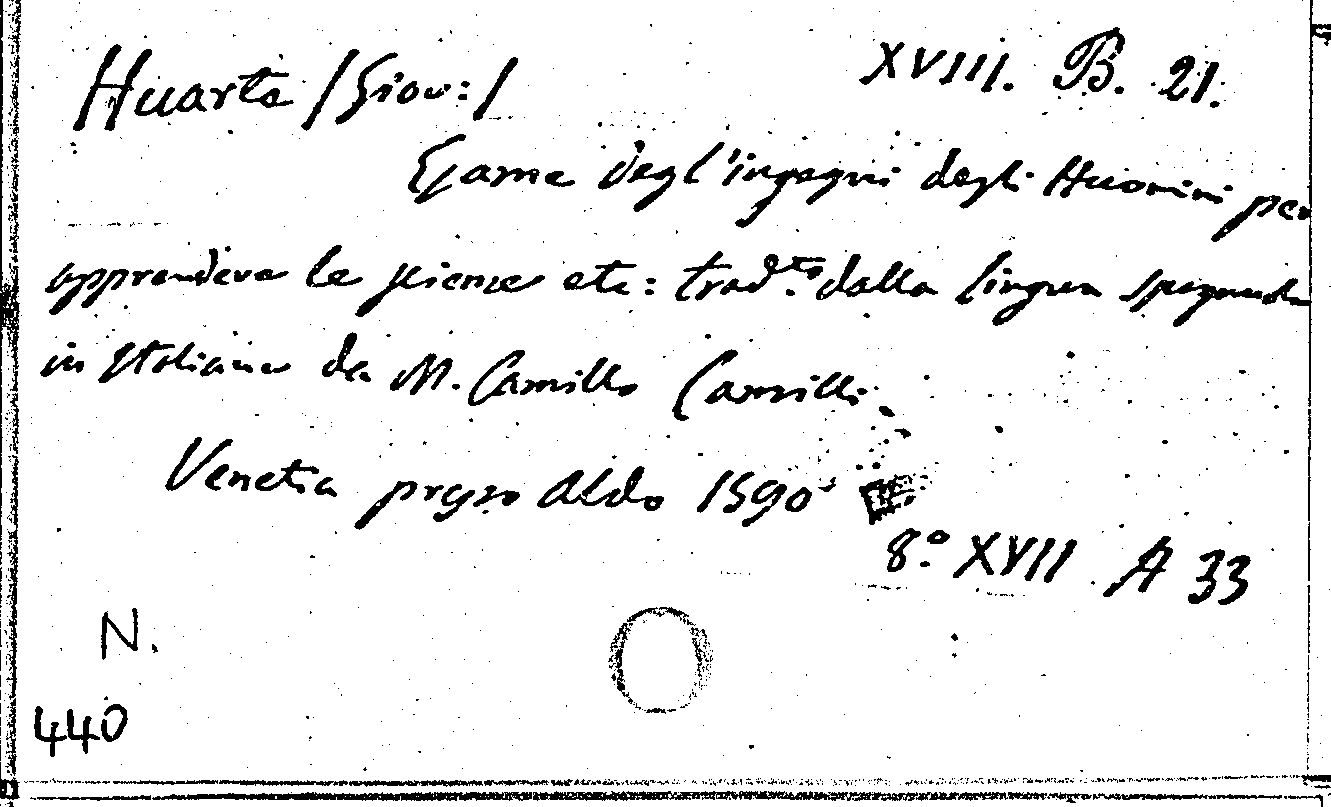 Huarte /Giov:/ XVIII. B. 21.
Esame degl'ingegni degli Huomini per
apprendere le scienze etc: trad.to dalla lingua spagnuola
in Italiano da M. Camillo Camilli.
Venetia presso Aldo 1590
8.o XVII A 33
N.
440